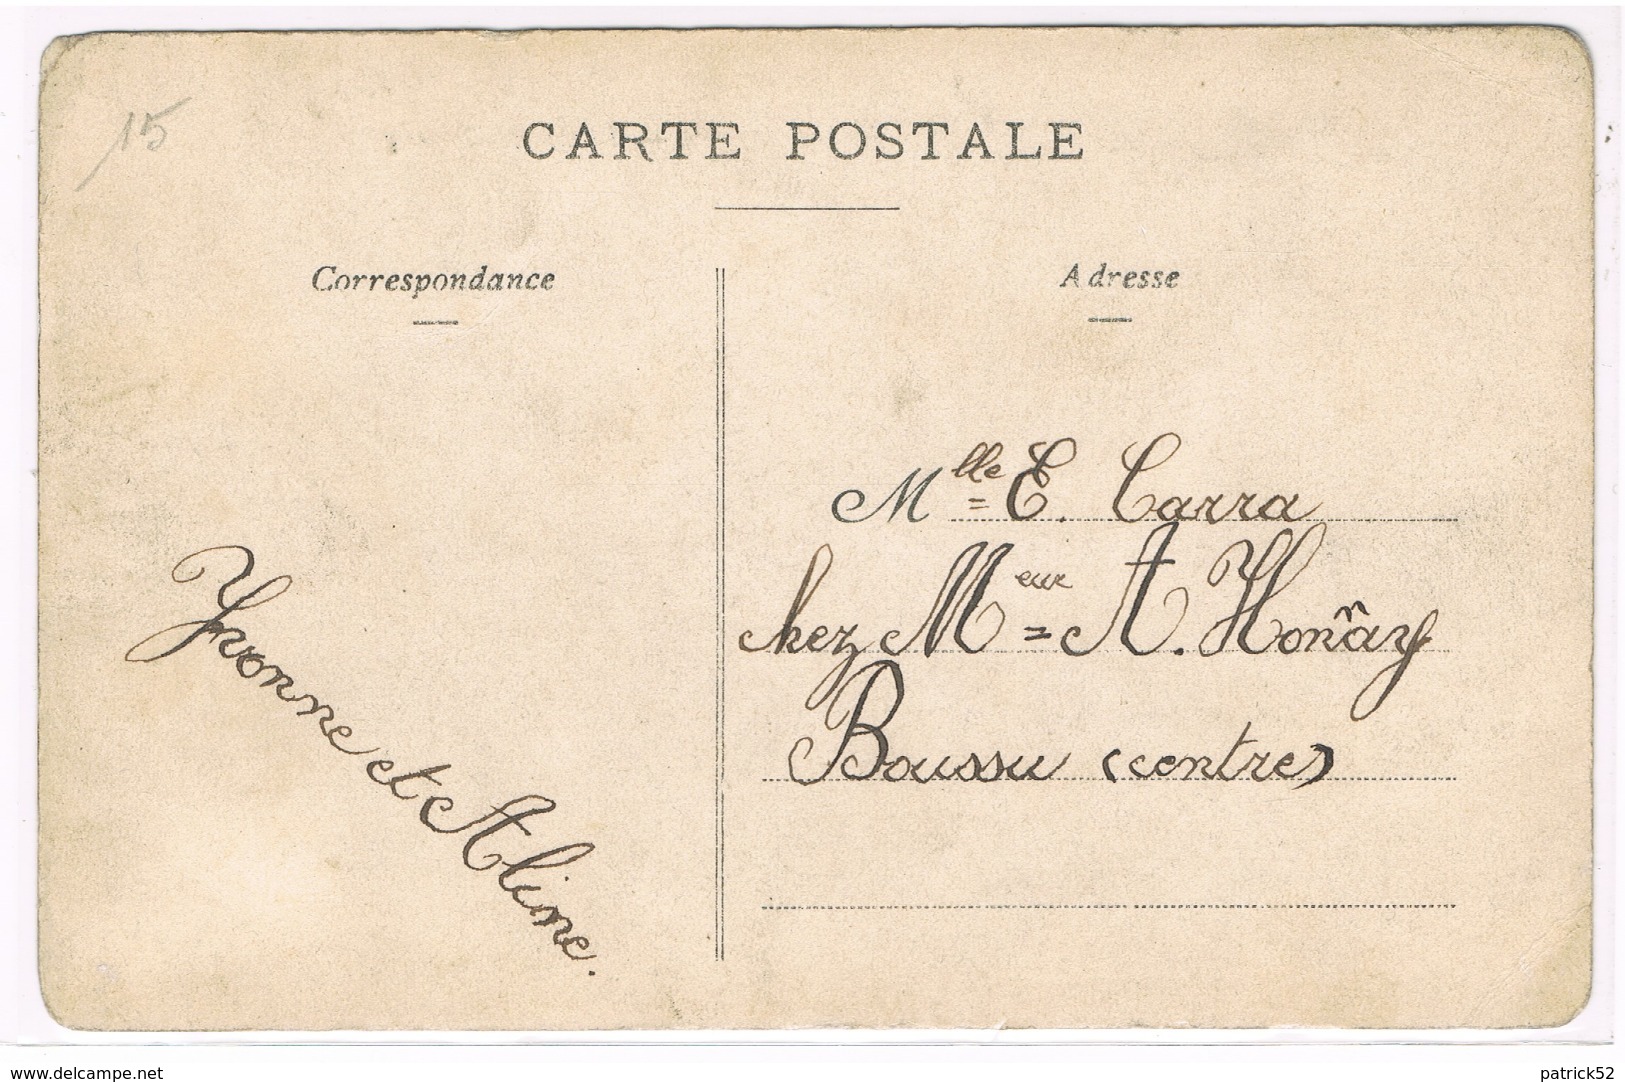 15
CARTE POSTALE
Correspondance
Adresse
Mlle E. Carra
chez Meur A. Honnay
Boussu (centre)
Yvonne et Aline.
www.delcampe.net
patrick52